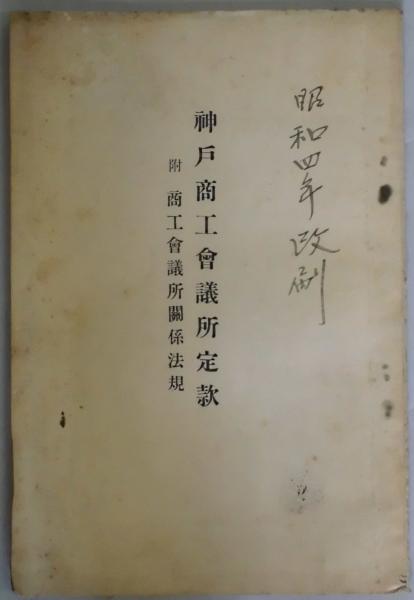 昭和四年改刷
神戸商工會議所定款
附 商工會議所關係法規